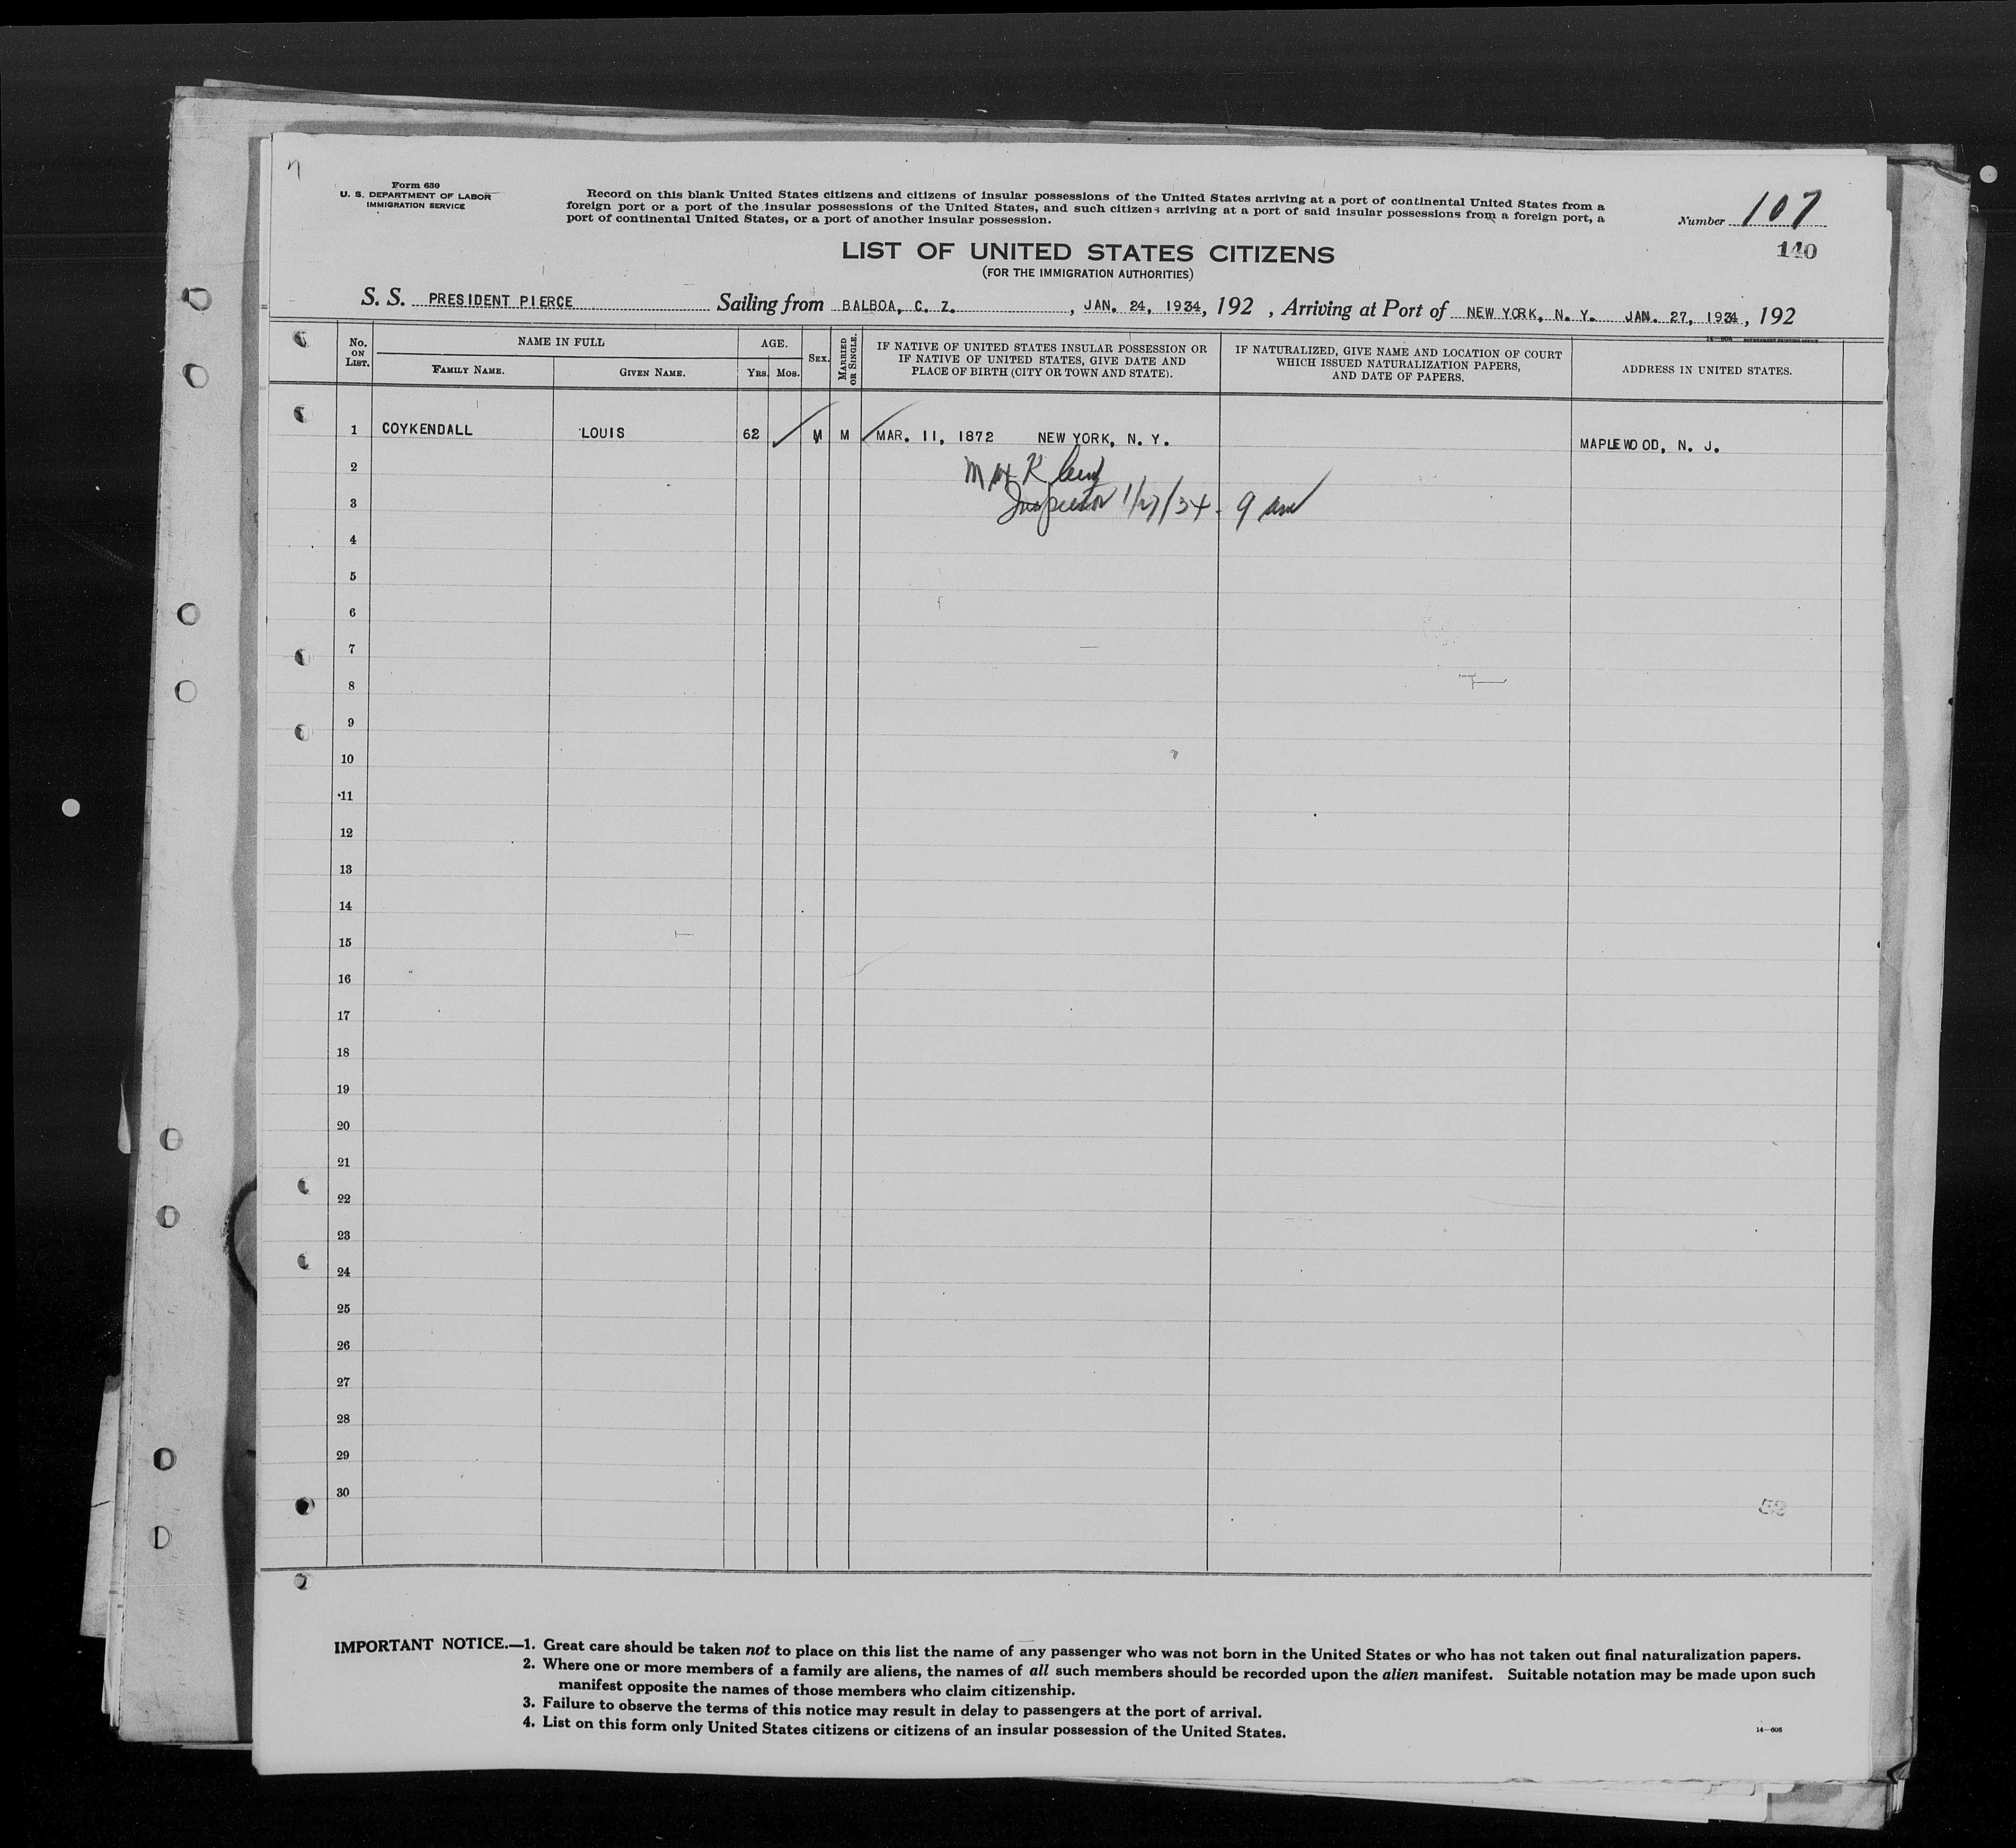 Form 630
U. S. DEPARTMENT OF LABOR
IMMIGRATION SERVICE
Record on this blank United States citizens and citizens of insular possessions of the United States arriving at a port of continental United States from a
foreign port or a port of the insular possessions of the United States, and such citizens arriving at a port of said insular possessions from a foreign port, a
port of continental United States, or a port of another insular possession.
Number 107
140
LIST OF UNITED STATES CITIZENS
(FOR THE IMMIGRATION AUTHORITIES)
S. S. PRESIDENT PIERCE Sailing from BALBOA, C. Z. , JAN. 24, 1934, 192 , Arriving at Port of NEW YORK, N. Y. JAN. 27, 1934, 192
14—608 GOVERNMENT PRINTING OFFICE
No. ON LIST.
NAME IN FULL
FAMILY NAME.
GIVEN NAME.
AGE.
YRS. MOS.
SEX.
MARRIED OR SINGLE.
IF NATIVE OF UNITED STATES INSULAR POSSESSION OR
IF NATIVE OF UNITED STATES, GIVE DATE AND
PLACE OF BIRTH (CITY OR TOWN AND STATE).
IF NATURALIZED, GIVE NAME AND LOCATION OF COURT
WHICH ISSUED NATURALIZATION PAPERS,
AND DATE OF PAPERS.
ADDRESS IN UNITED STATES.
1 COYKENDALL LOUIS 62 M M MAR. 11, 1872 NEW YORK, N. Y. MAPLEWOOD, N. J.
2
3 Inspector 1/27/34 - 9 am
4
5
6
7
8
9
10
11
12
13
14
15
16
17
18
19
20
21
22
23
24
25
26
27
28
29
30
52
IMPORTANT NOTICE.—1. Great care should be taken not to place on this list the name of any passenger who was not born in the United States or who has not taken out final naturalization papers.
2. Where one or more members of a family are aliens, the names of all such members should be recorded upon the alien manifest. Suitable notation may be made upon such
manifest opposite the names of those members who claim citizenship.
3. Failure to observe the terms of this notice may result in delay to passengers at the port of arrival.
4. List on this form only United States citizens or citizens of an insular possession of the United States.
14—608